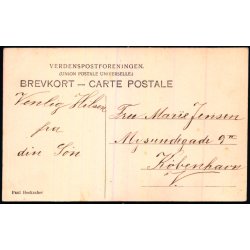 VERDENSPOSTFORENINGEN.
(UNION POSTALE UNIVERSELLE)
BREVKORT — CARTE POSTALE
Venlig Hilsen
fra
din Søn
Fru Marie Jensen
Mysundegade
København
V.
Paul Heckscher